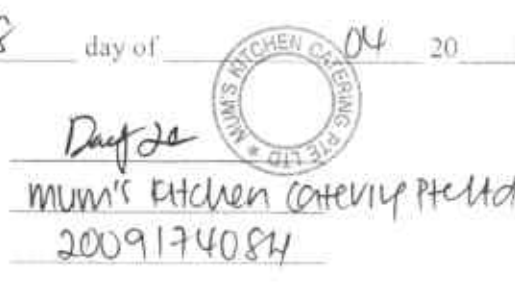 day of 04 20
MUM'S KITCHEN CATERING PTE LTD *
mum's Kitchen Catering Pte Ltd
200917408H